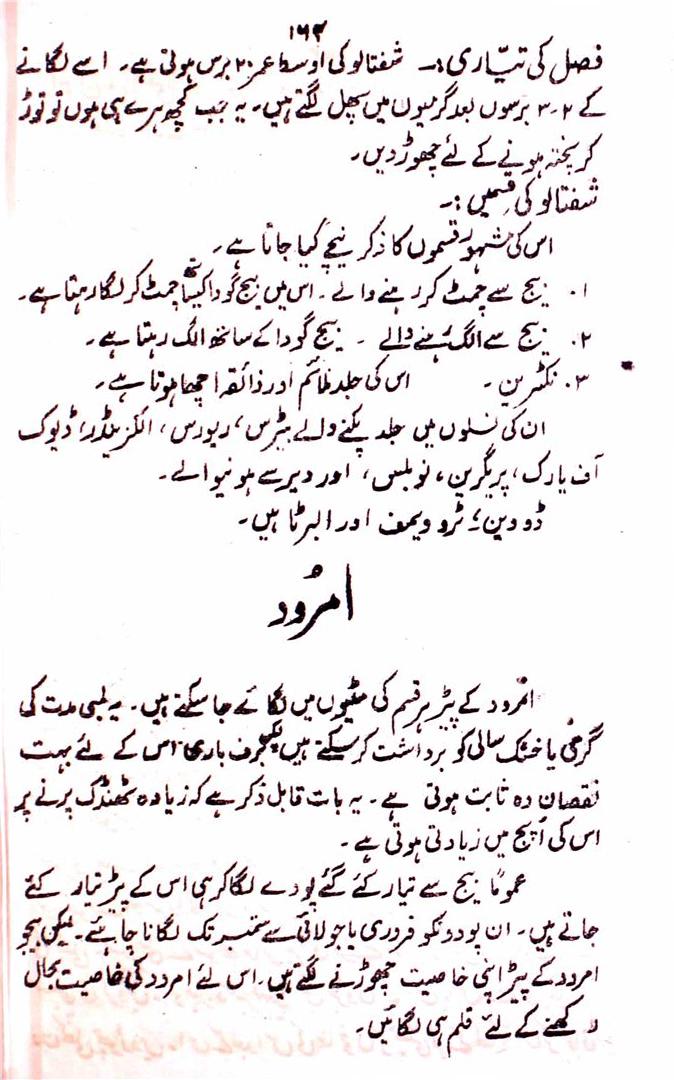 ۱۶۲
فصل کی تیّاری:۔ شفتالو کی اوسط عمر ۲۰ برس ہوتی ہے۔ اسے لگانے
کے ۲۔۳ برسوں بعد گرمیوں میں پھل لگتے ہیں۔ یہ جب کچھ ہرے ہی ہوں تو توڑ
کر پختہ ہونے کے لئے چھوڑ دیں۔
شفتالو کی قسمیں:۔
اس کی مشہور قسموں کا ذکر نیچے کیا جاتا ہے۔
۱. بیج سے چمٹ کر رہنے والے۔ اس میں بیج گودا کیساتھ چمٹ کر لگا رہتا ہے۔
۲. بیج سے الگ رہنے والے ۔ بیج گودا کے ساتھ الگ رہتا ہے۔
۳. نکٹرین۔ اس کی جلد ملائم اور ذائقہ اچھا ہوتا ہے۔
ان کی نسلوں میں جلد پکنے والے بیٹرس، ریورس، الگزینڈر، ڈیوک
آف یارک، پریگرین، نوبلس، اور دیر سے ہونیوالے۔
ڈووین، ٹروویمف اور البرٹا ہیں۔
امرُود
امرُود کے پیڑ ہر قسم کی مٹیوں میں لگائے جا سکتے ہیں۔ یہ لمبی مدت کی
گرمی یا خشک سالی کو برداشت کر سکتے ہیں لیکن برف باری اس کے لئے بہت
نقصان دہ ثابت ہوتی ہے۔ یہ بات قابل ذکر ہے کہ زیادہ ٹھنڈک پرنے پر
اس کی اُپج میں زیادتی ہوتی ہے۔
عموماً بیج سے تیار کئے گئے پودے لگا کر ہی اس کے پیڑ تیار کئے
جاتے ہیں۔ ان پودونکو فروری یا جولائی سے ستمبر تک لگانا چاہئے۔ لیکن بیجو
امرود کے پیڑ اپنی خاصیت چھوڑنے لگتے ہیں۔ اس لئے امرود کی خاصیت بحال
رکھنے کے لئے قلم ہی لگائیں۔